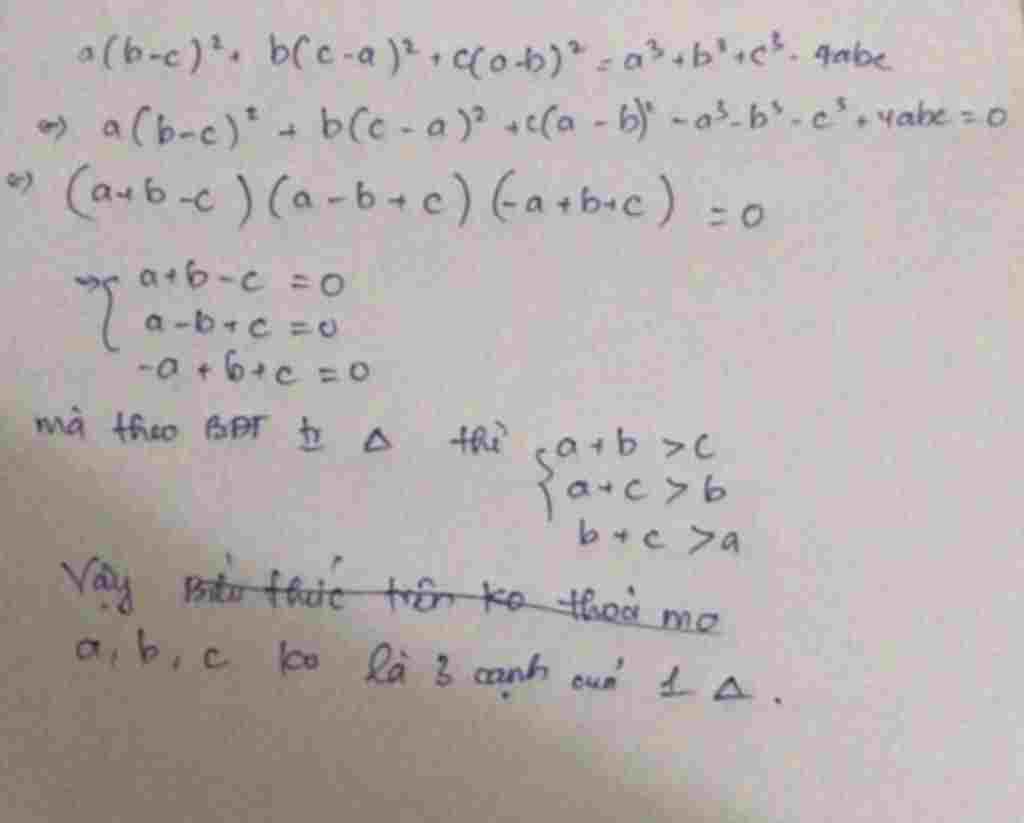 a(b-c)² + b(c-a)² + c(a-b)² = a³ + b³ + c³ - 4abc
⇔ a(b-c)² + b(c-a)² + c(a-b)² - a³ - b³ - c³ + 4abc = 0
⇔ (a+b-c)(a-b+c)(-a+b+c) = 0
⇔ { a+b-c = 0
a-b+c = 0
-a+b+c = 0
mà theo BĐT Δ thì { a+b > c
a+c > b
b+c > a
Vậy Biểu thức trên ko thoả mo
a, b, c ko là 3 cạnh của 1 Δ.